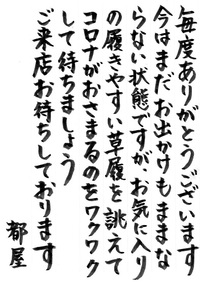 毎度ありがとうございます
今はまだお出かけもままな
らない状態ですが、お気に入り
の履きやすい草履を誂えて
コロナがおさまるのをワクワク
して待ちましょう
ご来店お待ちしております
都屋